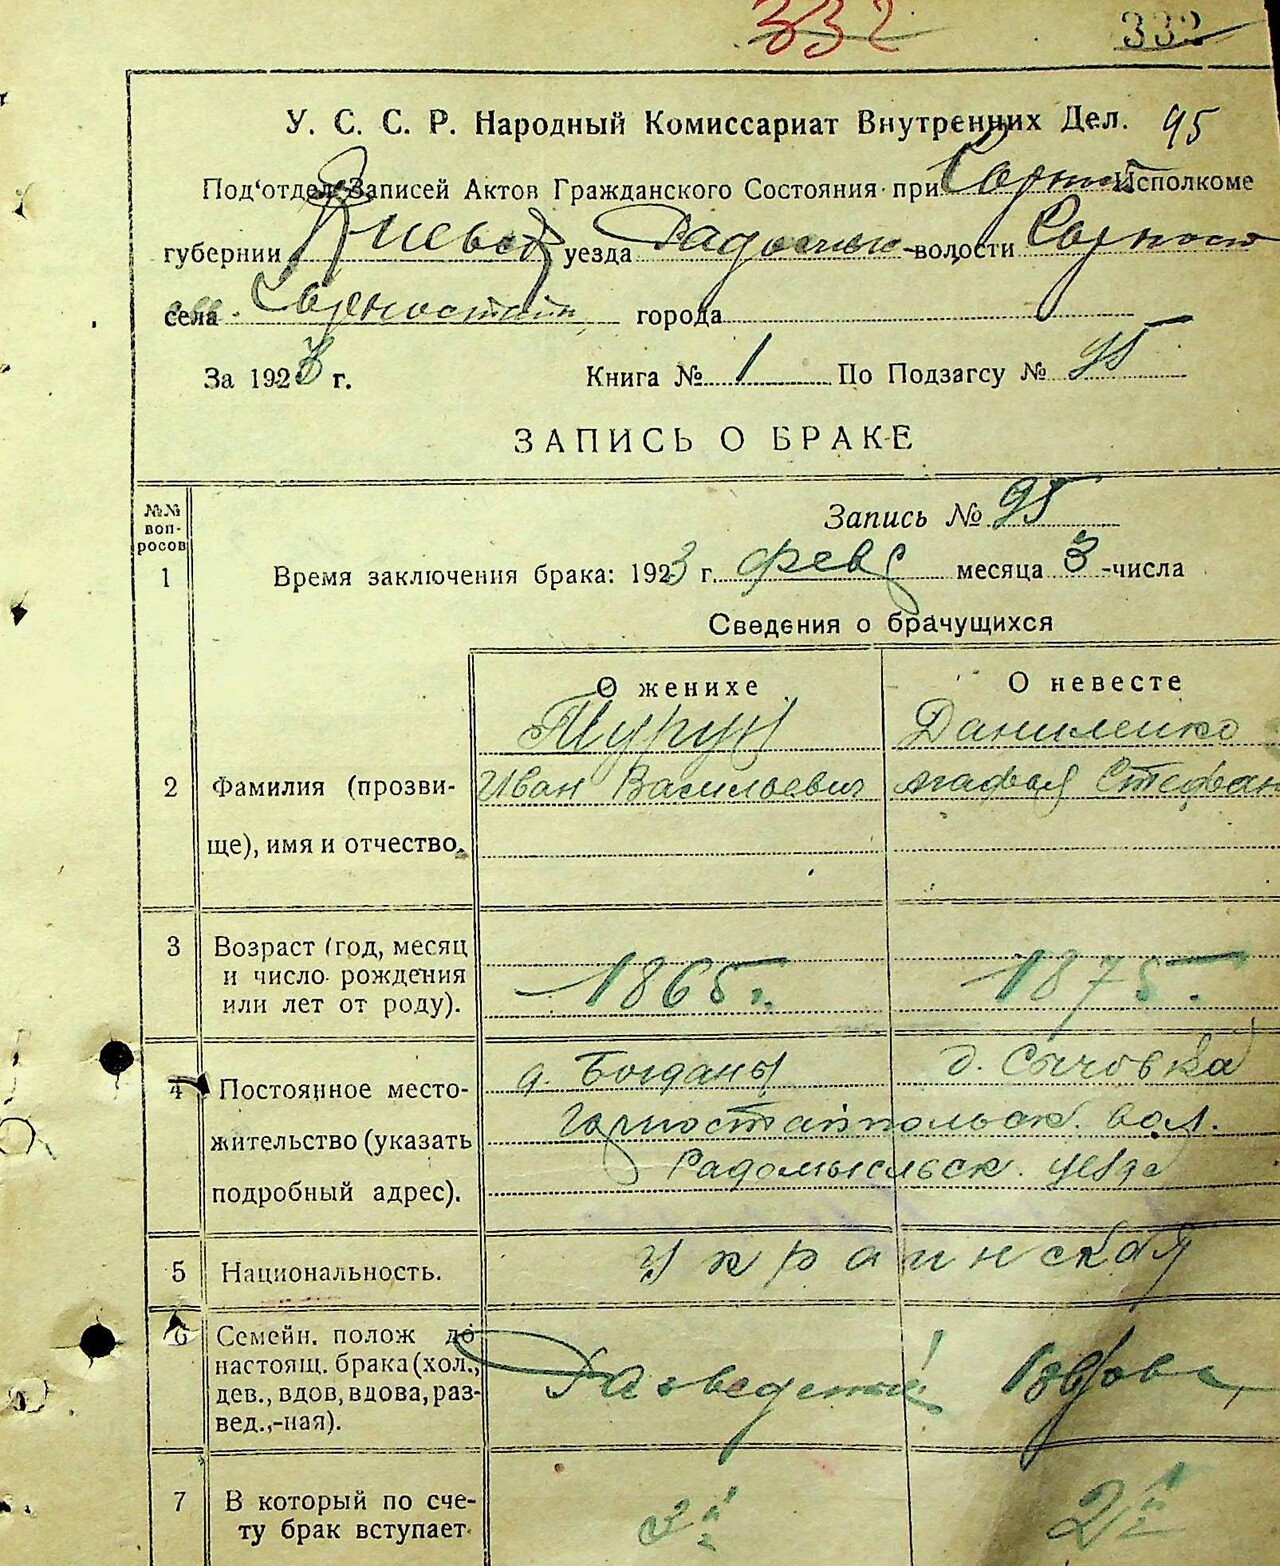 332 332
У. С. С. Р. Народный Комиссариат Внутренних Дел. 95
Под'отдел Записей Актов Гражданского Состояния при Горност Исполкоме
губернии Киевск уезда Радомысл волости Горност
села Горностайп города
За 1923 г. Книга № 1 По Подзагсу № 95
ЗАПИСЬ О БРАКЕ
№№ воп-росов
Запись № 95
1 Время заключения брака: 1923 г. февр месяца 3 -числа
Сведения о брачущихся
О женихе О невесте
Турун Даниленко
2 Фамилия (прозви- Иван Васильевич Агафья Стефан
ще), имя и отчество.
3 Возраст (год, месяц
и число рождения 1865 г. 1875.
или лет от роду).
д. Богданы д. Сычовка
4 Постоянное место- Горностайпольск. вол.
жительство (указать Радомысльск. уезда
подробный адрес).
5 Национальность. Украинская
6 Семейн. полож до
настоящ. брака (хол., Разведеный Вдова
дев., вдов, вдова, раз-
вед.,-ная).
7 В который по сче- 3й 2й
ту брак вступает